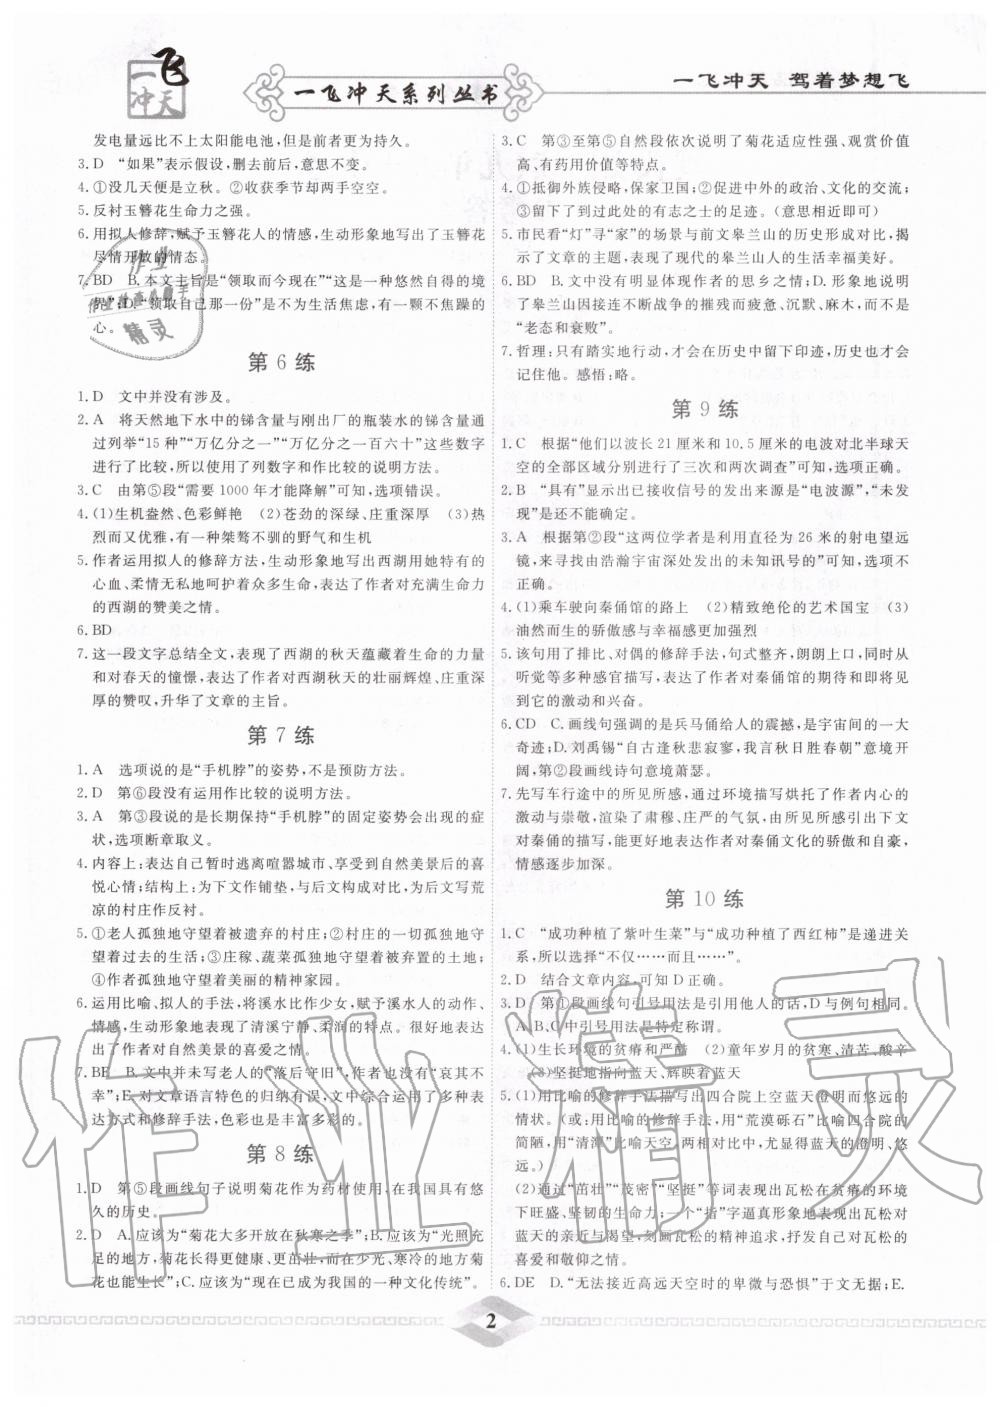 一飞冲天
一飞冲天系列丛书
一飞冲天 驾着梦想飞
发电量远比不上太阳能电池,但是前者更为持久。
3. D “如果”表示假设,删去前后,意思不变。
4. ①没几天便是立秋。②收获季节却两手空空。
5. 反衬玉簪花生命力之强。
6. 用拟人修辞,赋予玉簪花人的情感,生动形象地写出了玉簪花
尽情开放的情态。
7. BD B. 本文主旨是“领取而今现在”“这是一种悠然自得的境
界”;D. “领取自己那一份”是不为生活焦虑,有一颗不焦躁的
心。
第 6 练
1. D 文中并没有涉及。
2. A 将天然地下水中的锑含量与刚出厂的瓶装水的锑含量通
过列举“15 种”“万亿分之一”“万亿分之一百六十”这些数字
进行了比较,所以使用了列数字和作比较的说明方法。
3. C 由第⑤段“需要 1000 年才能降解”可知,选项错误。
4. (1)生机盎然、色彩鲜艳 (2)苍劲的深绿、庄重深厚 (3)热
烈而又优雅,有一种桀骜不驯的野气和生机
5. 作者运用拟人的修辞方法,生动形象地写出西湖用她特有的
心血、柔情无私地呵护着众多生命,表达了作者对充满生命力
的西湖的赞美之情。
6. BD
7. 这一段文字总结全文,表现了西湖的秋天蕴藏着生命的力量
和对春天的憧憬,表达了作者对西湖秋天的壮丽辉煌、庄重深
厚的赞叹,升华了文章的主旨。
第 7 练
1. A 选项说的是“手机脖”的姿势,不是预防方法。
2. D 第⑥段没有运用作比较的说明方法。
3. A 第③段说的是长期保持“手机脖”的固定姿势会出现的症
状,选项断章取义。
4. 内容上:表达自己暂时逃离喧嚣城市、享受到自然美景后的喜
悦心情;结构上:为下文作铺垫,与后文构成对比,为后文写荒
凉的村庄作反衬。
5. ①老人孤独地守望着被遗弃的村庄;②村庄的一切孤独地守
望着过去的生活;③庄稼、蔬菜孤独地守望着被弃置的土地;
④作者孤独地守望着美丽的精神家园。
6. 运用比喻、拟人的手法,将溪水比作少女,赋予溪水人的动作、
情感,生动形象地表现了清溪宁静、柔润的特点。很好地表达
出了作者对自然美景的喜爱之情。
7. BE B. 文中并未写老人的“落后守旧”,作者也没有“哀其不
幸”;E. 对文章语言特色的归纳有误,文中综合运用了多种表
达方式和修辞手法,色彩也是丰富多彩的。
第 8 练
1. D 第⑤段画线句子说明菊花作为药材使用,在我国具有悠
久的历史。
2. D A. 应该为“菊花大多开放在秋寒之季”;B. 应该为“光照充
足的地方,菊花长得更健康、更茁壮,而在少光、寒冷的地方菊
花也能生长”;C. 应该为“现在已成为我国的一种文化传统”。
3. C 第③至第⑤自然段依次说明了菊花适应性强、观赏价值
高、有药用价值等特点。
4. ①抵御外族侵略,保家卫国;②促进中外的政治、文化的交流;
③留下了到过此处的有志之士的足迹。(意思相近即可)
5. 市民看“灯”寻“家”的场景与前文皋兰山的历史形成对比,揭
示了文章的主题,表现了现代的皋兰山人的生活幸福美好。
6. BD B. 文中没有明显体现作者的思乡之情;D. 形象地说明
了皋兰山因接连不断战争的摧残而疲惫、沉默、麻木,而不是
“老态和衰败”。
7. 哲理:只有踏实地行动,才会在历史中留下印迹,历史也才会
记住他。感悟:略。
第 9 练
1. C 根据“他们以波长 21 厘米和 10.5 厘米的电波对北半球天
空的全部区域分别进行了三次和两次调查”可知,选项正确。
2. B “具有”显示出已接收信号的发出来源是“电波源”,“未发
现”是还不能确定。
3. A 根据第②段“这两位学者是利用直径为 26 米的射电望远
镜,来寻找由浩瀚宇宙深处发出的未知讯号的”可知,选项不
正确。
4. (1)乘车驶向秦俑馆的路上 (2)精致绝伦的艺术国宝 (3)
油然而生的骄傲感与幸福感更加强烈
5. 该句用了排比、对偶的修辞手法,句式整齐,朗朗上口,同时从
听觉等多种感官描写,表达了作者对秦俑馆的期待和即将见
到它的激动和兴奋。
6. CD C. 画线句强调的是兵马俑给人的震撼,是宇宙间的一大
奇迹;D. 刘禹锡“自古逢秋悲寂寥,我言秋日胜春朝”意境开
阔,第②段画线诗句意境萧瑟。
7. 先写车行途中的所见所感,通过环境描写烘托了作者内心的
激动与崇敬,渲染了肃穆、庄严的气氛,同时也为引出下文
对秦俑的描写,能更好地表达作者对秦俑文化的骄傲和自豪,
情感逐步加深。
第 10 练
1. C “成功种植了紫叶生菜”与“成功种植了西红柿”是递进关
系,所以选择“不仅……而且……”。
2. D 结合文章内容,可知 D 正确。
3. D 第①段画线句引号用法是引用他人的话,D 与例句相同。
A、B、C 中引号用法是特定称谓。
4. (1)生长环境的贫瘠和严酷 (2)童年岁月的贫寒、清苦、酸辛
(3)坚挺地指向蓝天、辉映着蓝天
5. (1)用比喻的修辞手法描写出四合院上空蓝天澄明而悠远的
情状。(或:用比喻的修辞手法描写,“荒漠砾石”比喻四合院的
简陋,用“清潭”比喻天空,两相对比中,尤显得蓝天的澄明、悠
远。)
(2)通过“茁壮”“茂密”“坚挺”等词语表现出瓦松在贫瘠的环境
下旺盛、坚韧的生命力;一个“指”字逼真形象地写出了瓦松对
蓝天的亲近与渴望,刻画瓦松的精神追求,抒发自己对瓦松的
喜爱和敬仰之情。
6. DE D. “无法接近高远天空时的卑微与恐惧”于文无据;E.
2
作业精灵